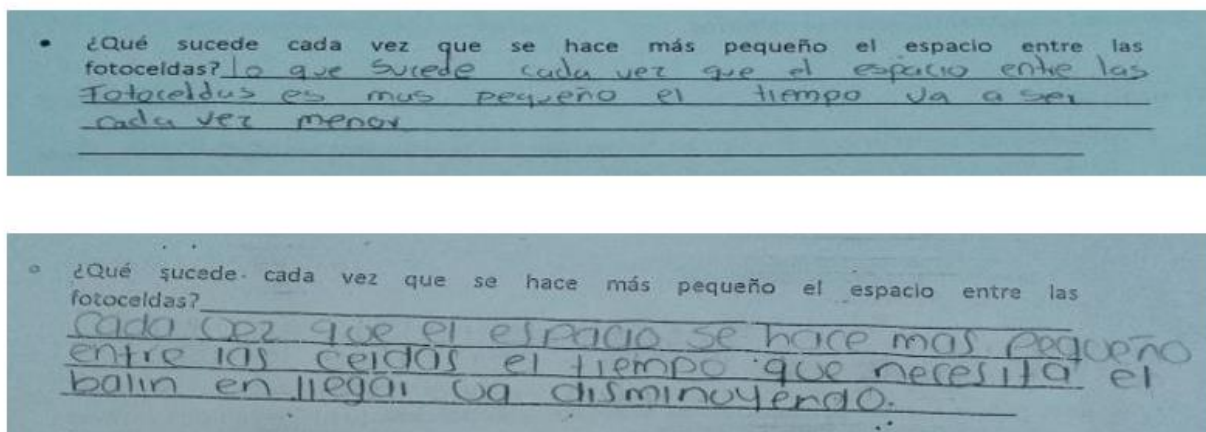 • ¿Qué sucede cada vez que se hace más pequeño el espacio entre las
fotoceldas? lo que sucede cada vez que el espacio entre las
Fotoceldas es mas pequeño el tiempo va a ser
cada vez menor
¿Qué sucede cada vez que se hace más pequeño el espacio entre las
fotoceldas?
Cada vez que el espacio se hace mas pequeño
entre las celdas el tiempo que necesita el
balin en llegar va disminuyendo.